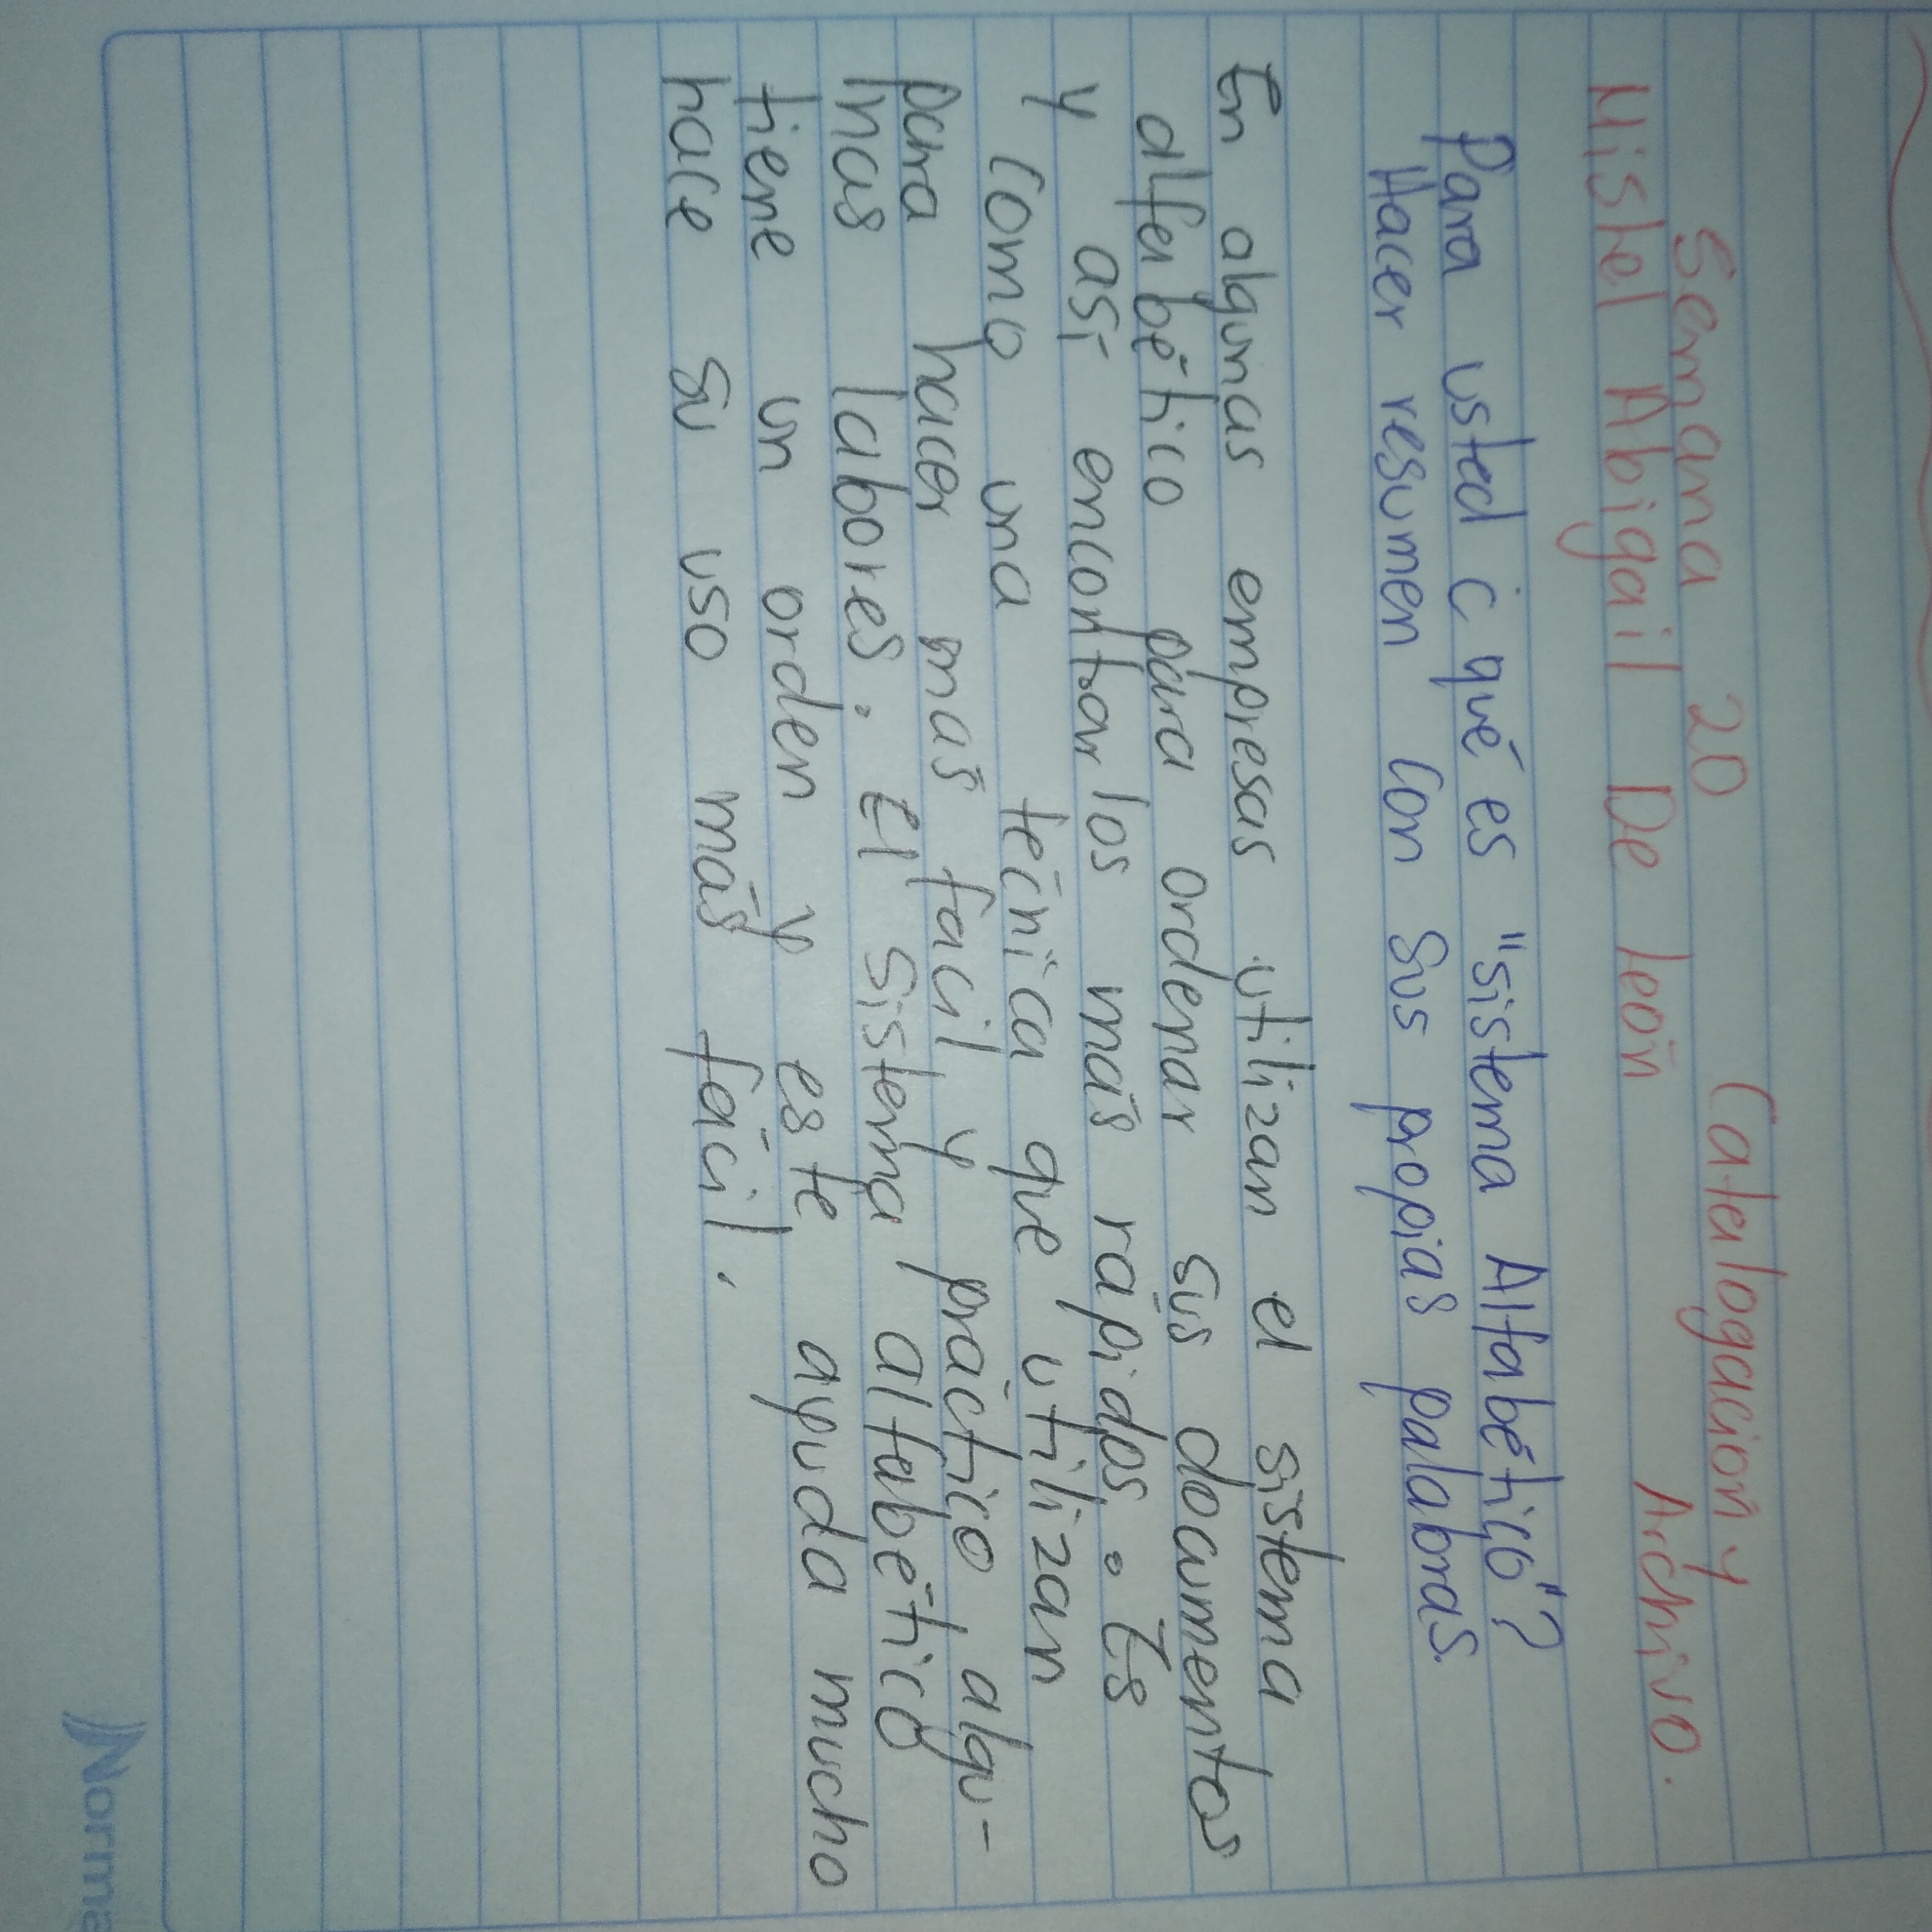 Semana 20 Catalogacion y
Mistel Abigail De león Archivo.
Para usted ¿ qué es "sistema Alfabético"?
Hacer resumen con sus propias palabras.
En algunas empresas utilizan el sistema
alfabético para ordenar sus documentos
y así encontrarlos más rapidos. Es
como una técnica que utilizan
para hacer más facil y práctico algu-
nas labores. El sistema alfabético
tiene un orden y este ayuda mucho
hace su uso más fácil.
Norma